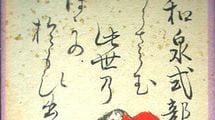 和泉式部
あらさらむ
此世乃
ほかの
おもひ出